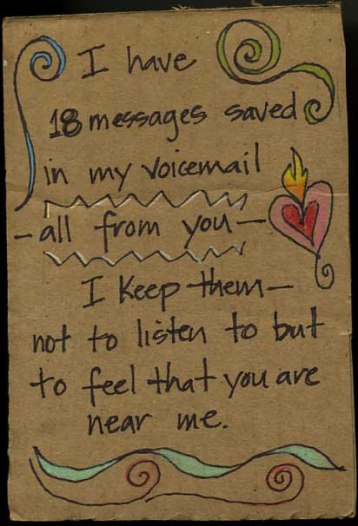 I have
18 messages saved
in my voicemail
- all from you -
I keep them -
not to listen to but
to feel that you are
near me.